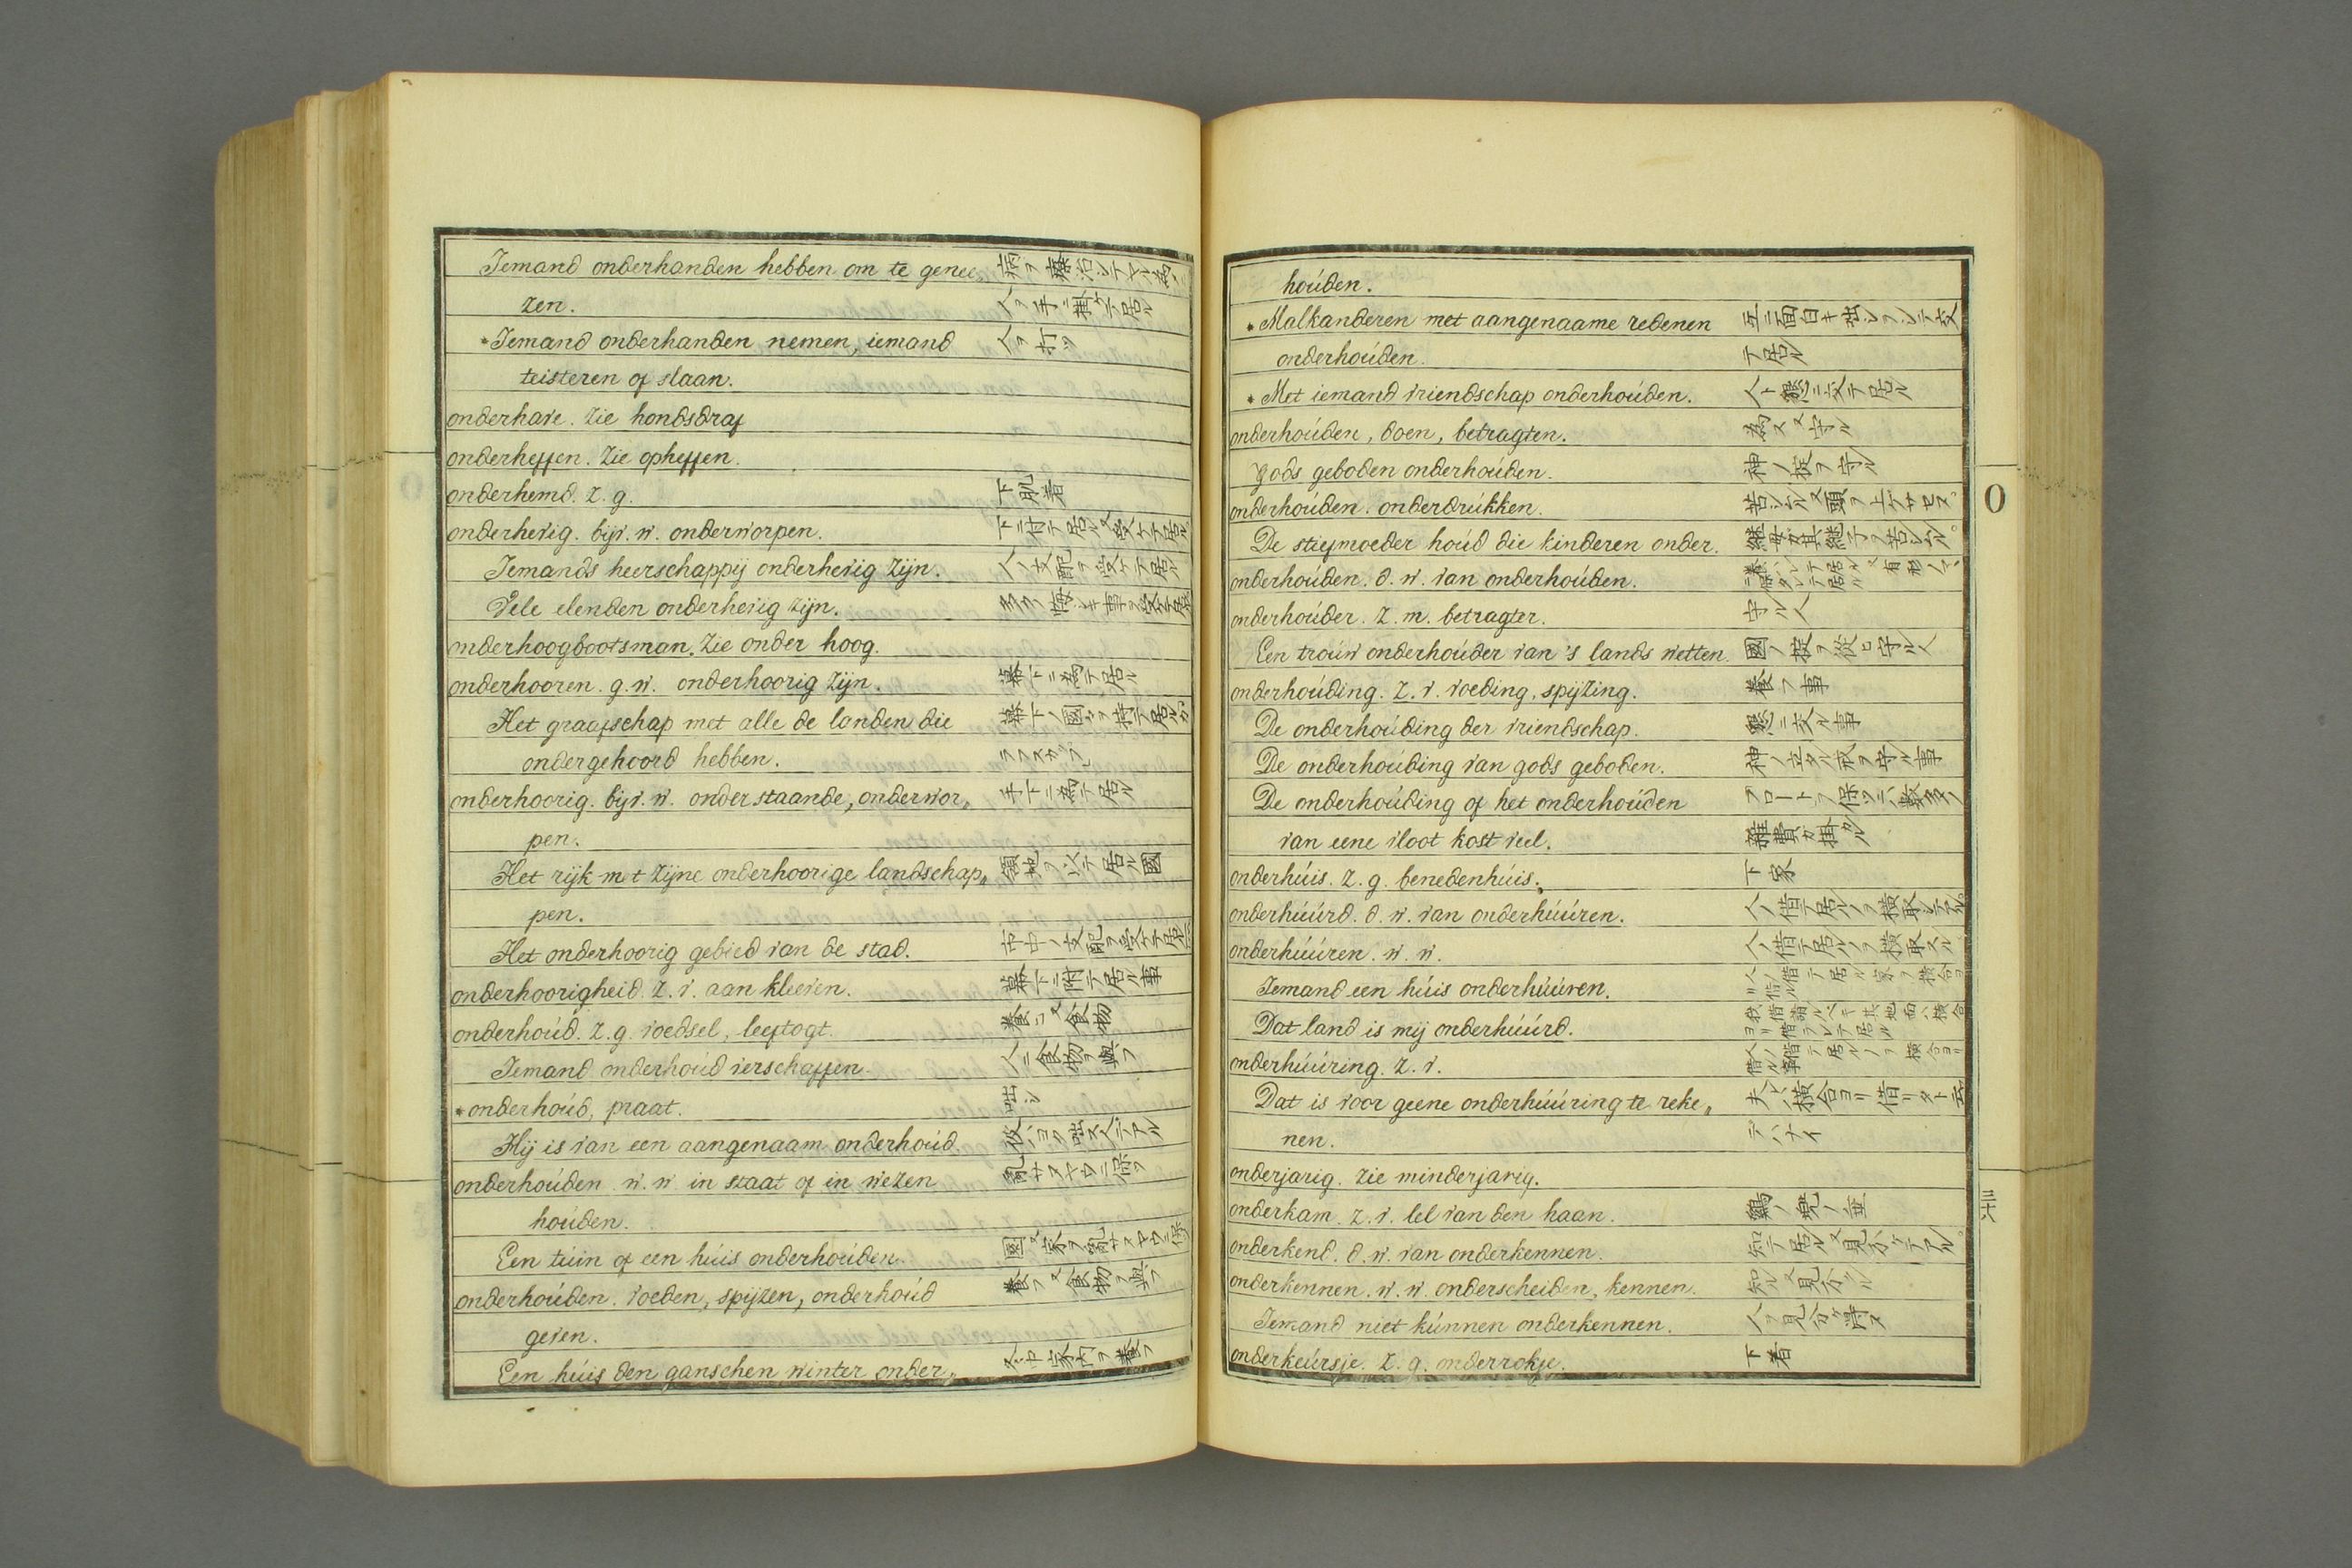 Iemand onderhanden hebben om te genee„ 病ヲ療治シテヤル為ニ
zen. 人ヲ手ニ掛ケテ居ル
*Iemand onderhanden nemen, iemand 人ヲ打ツ
teisteren of slaan.
onderhave. zie hondsdraf
onderheffen. zie opheffen.
onderhemd. z. g. 下肌着
onderhevig. bijv. w. onderworpen. 下ニ付テ居ル又受ケテ居ル
Iemands heerschappij onderhevig zijn. 人ノ支配ヲ受ケテ居ル
Vele elenden onderhevig zijn.
onderhoogbootsman. zie onder hoog.
onderhooren. g. w. onderhoorig zijn. 幕下ニ為テ居ル
Het graafschap met alle de landen die
ondergehoord hebben.
onderhoorig. bijv. w. onder staande, onderwor„ 手下ニ為テ居ル
pen.
Het rijk m t zijne onderhoorige landschap„ 領地ヲ以テ居ル國
pen.
Het onderhoorig gebied van de stad. 市中ノ支配ヲ受ケテ居
onderhoorigheid. z. v. aan kleeven. 幕下ニ附テ居ル事
onderhoúd. z. g. voedsel, leeftogt. 養ニ又食物
Iemand onderhoúd verschaffen. 人ニ食物ヲ與フ
*onderhoúd, praat. 咄シ
Hij is van een aangenaam onderhoúd.
onderhoúden. w. w. in staat of in wezen 亂サヌヤウニ保ツ
hoúden.
Een túin of een húis onderhoúden.
onderhoúden. voeden, spijzen, onderhoúd 養フ又食物ヲ與フ
geven.
Een húis den ganschen winter onder„ 冬中家内ヲ養フ
hoúden.
*Malkanderen met aangenaame redenen 互ニ面白キ咄シヲシテ交
onderhoúden. テ居ル
*Met iemand vriendschap onderhoúden. 人ト懇ニ交テ居ル
onderhoúden, doen, betragten. 為ス又守ル
Gods geboden onderhoúden. 神ノ掟ヲ守ル
onderhoúden. onderdrúkken.
De stiefmoeder hoúd die kinderen onder. 継母ガ其継子ヲ苦シムル。
onderhouden. d. w. van onderhoúden.
onderhoúder. z. m. betragter. 守ル人
Een troúw onderhoúder van 's lands wetten. 國ノ掟ヲ從ヒ守ル人
onderhoúding. z. v. voeding, spijzing. 養フ事
De onderhoúding der vriendschap. 懇ニ交ル事
De onderhoúding van gods geboden. 神ノ立タル戒ヲ守ル事
De onderhoúding of het onderhoúden フロートヲ保ツニハ数多ノ
van eene vloot kost veel. 雜費ガ掛ル
onderhúis. z. g. benedenhúis. 下家
onderhúúrd. d. w. van onderhúúren.
onderhúúren. w. w. 人ノ借テ居ルノヲ横取スル
Iemand een húis onderhúúren. 人ノ借テ居ル家ヲ横合ヨリ借ル
Dat land is mij onderhúúrd.
onderhúúring. z. v. 人ノ借テ居ルノヲ横合ヨリ借ル事
Dat is voor geene onderhúúring te reke„ 夫レハ横合ヨリ借リタト云
nen. デハナイ
onderjarig. zie minderjarig.
onderkam. z. v. lel van den haan.
onderkend. d. w. van onderkennen.
onderkennen. w. w. onderscheiden, kennen. 知ル又見分ケル
Iemand niet kúnnen onderkennen. 人ヲ見分ケ得ヌ
onderkeúrsje. z. g. onderrokje. 下着
O
三十六